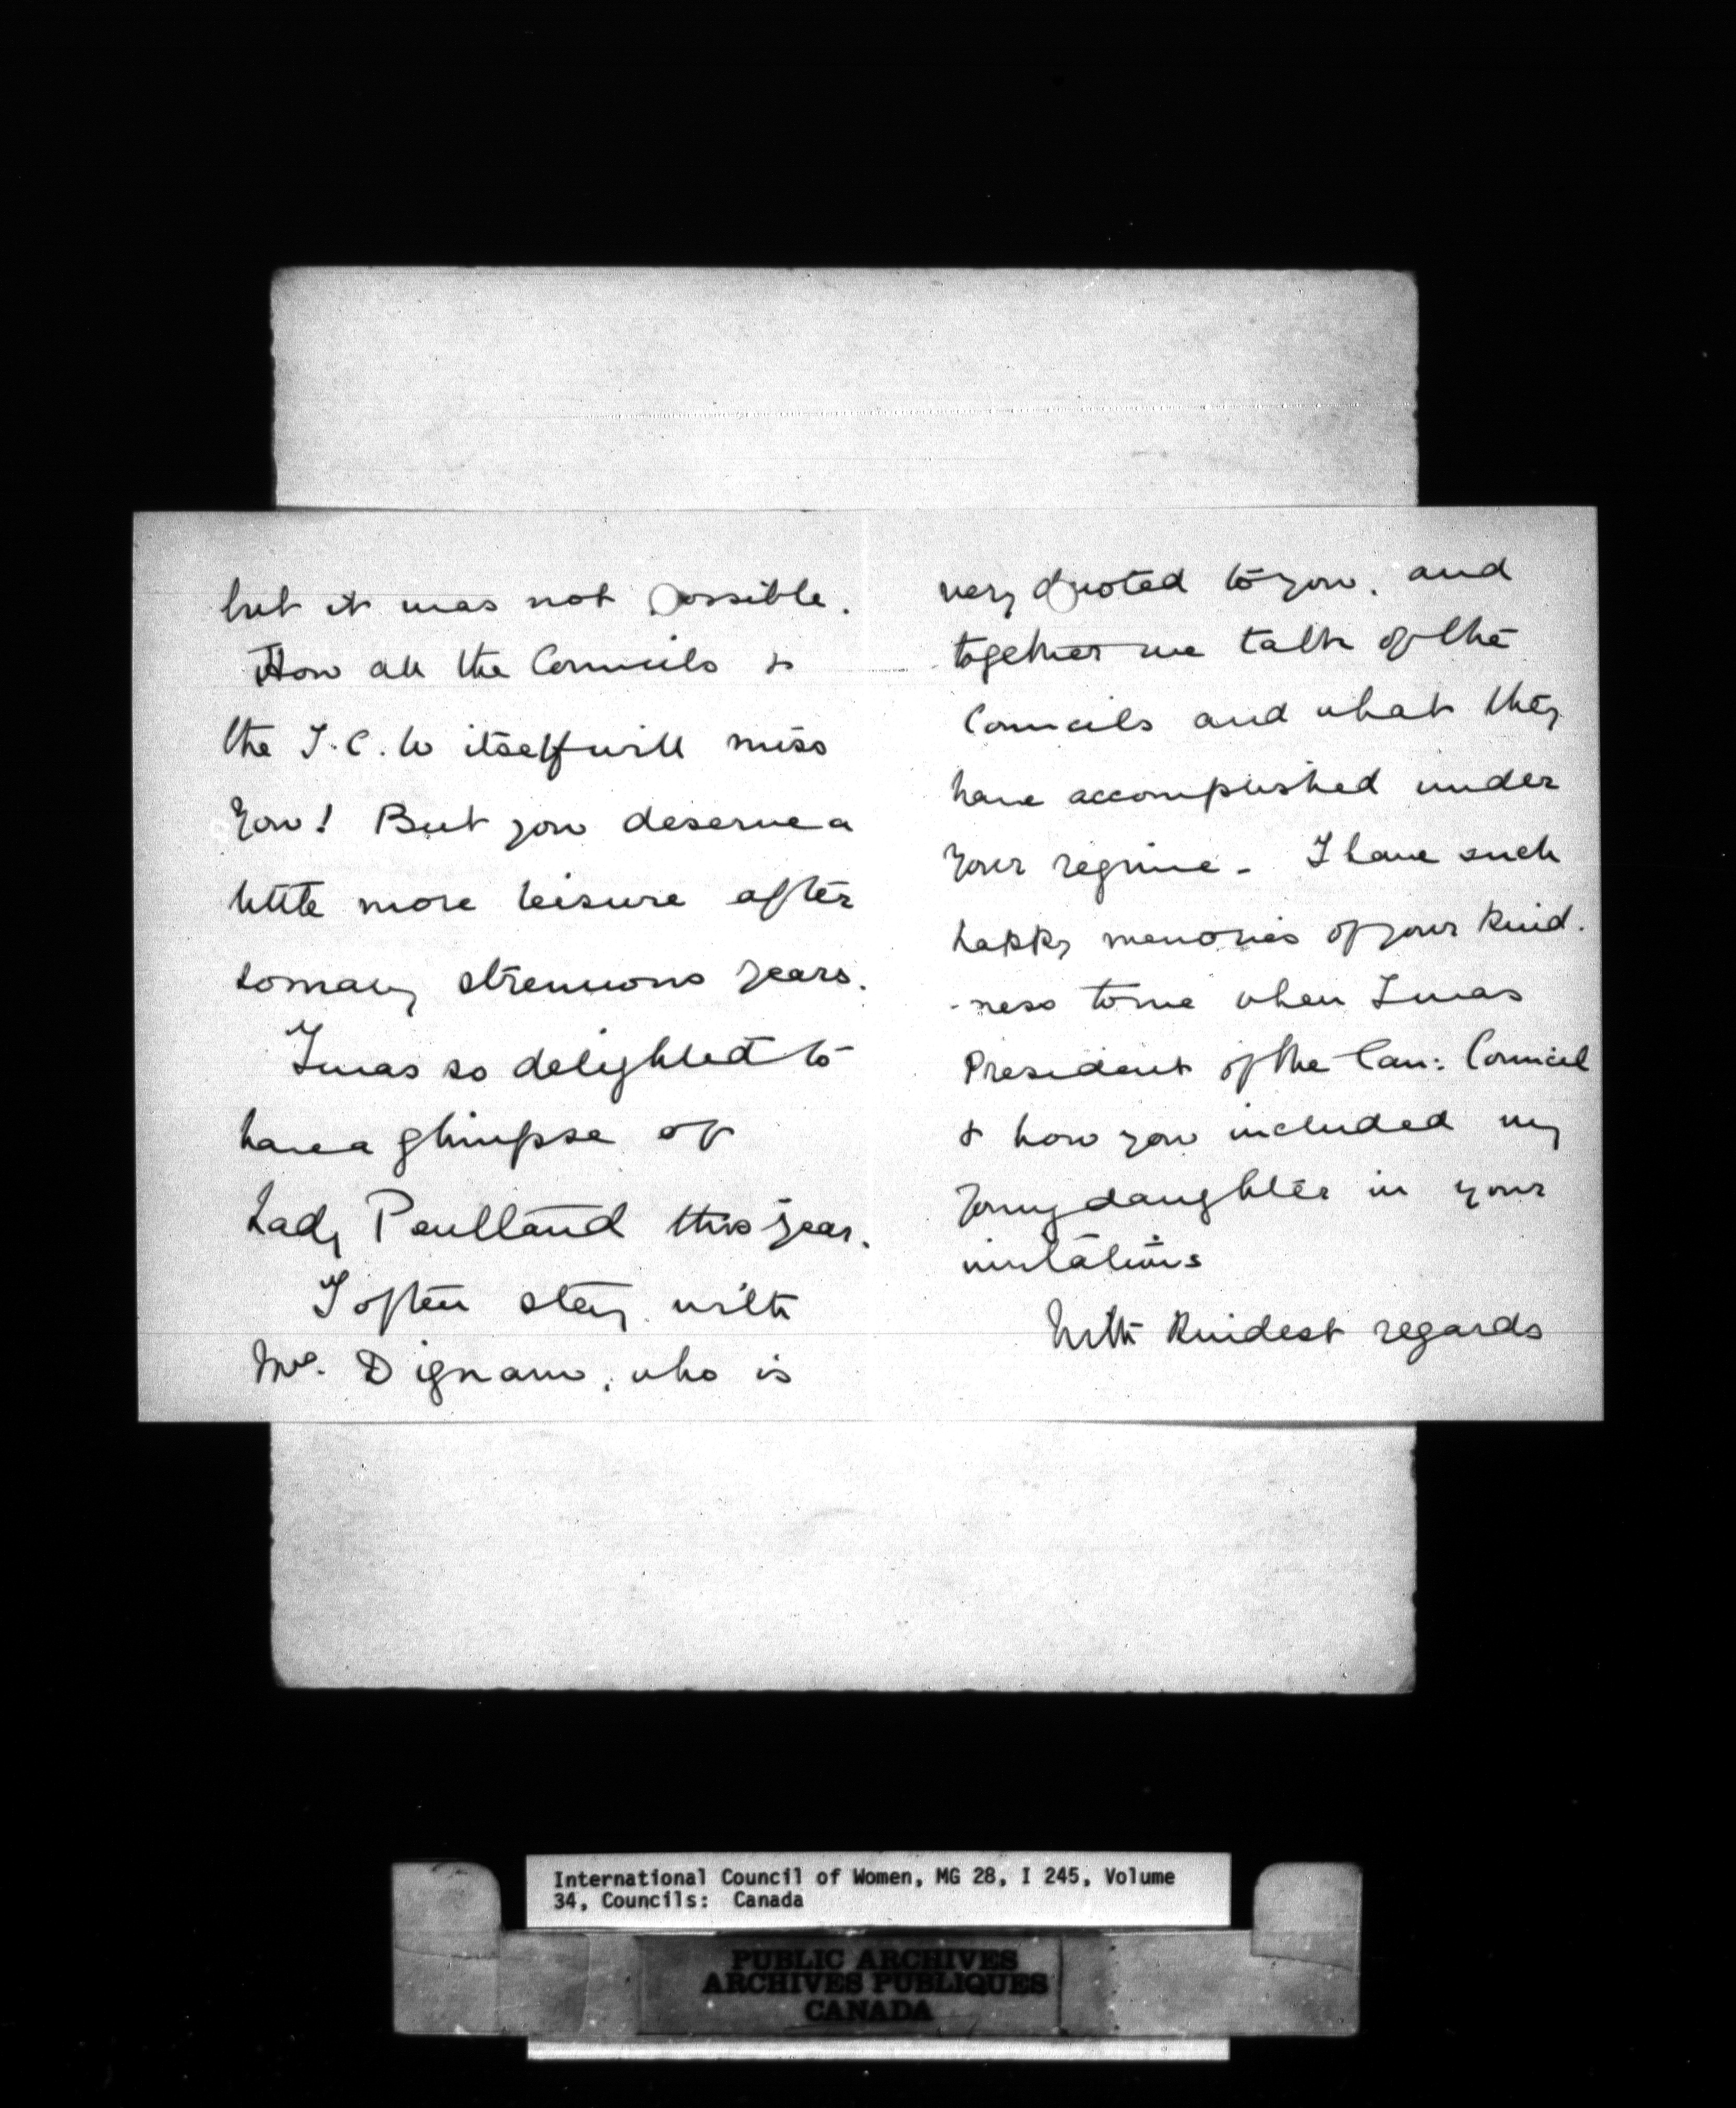 but it was not possible.
How all the Councils &
the I.C.W itself will miss
you! But you deserve a
little more leisure after
so many strenuous years.
I was so delighted to
have a glimpse of
Lady Pentland this year.
I often stay with
Mrs. Dignam, who is
very devoted to you, and
together we talk of the
Councils and what they
have accomplished under
your regime - I have such
happy memories of your kind-
-ness to me when I was
President of the Can: Council
& how you included my
young daughter in your
invitations
With kindest regards
International Council of Women, MG 28, I 245, Volume
34, Councils: Canada
PUBLIC ARCHIVES
ARCHIVES PUBLIQUES
CANADA